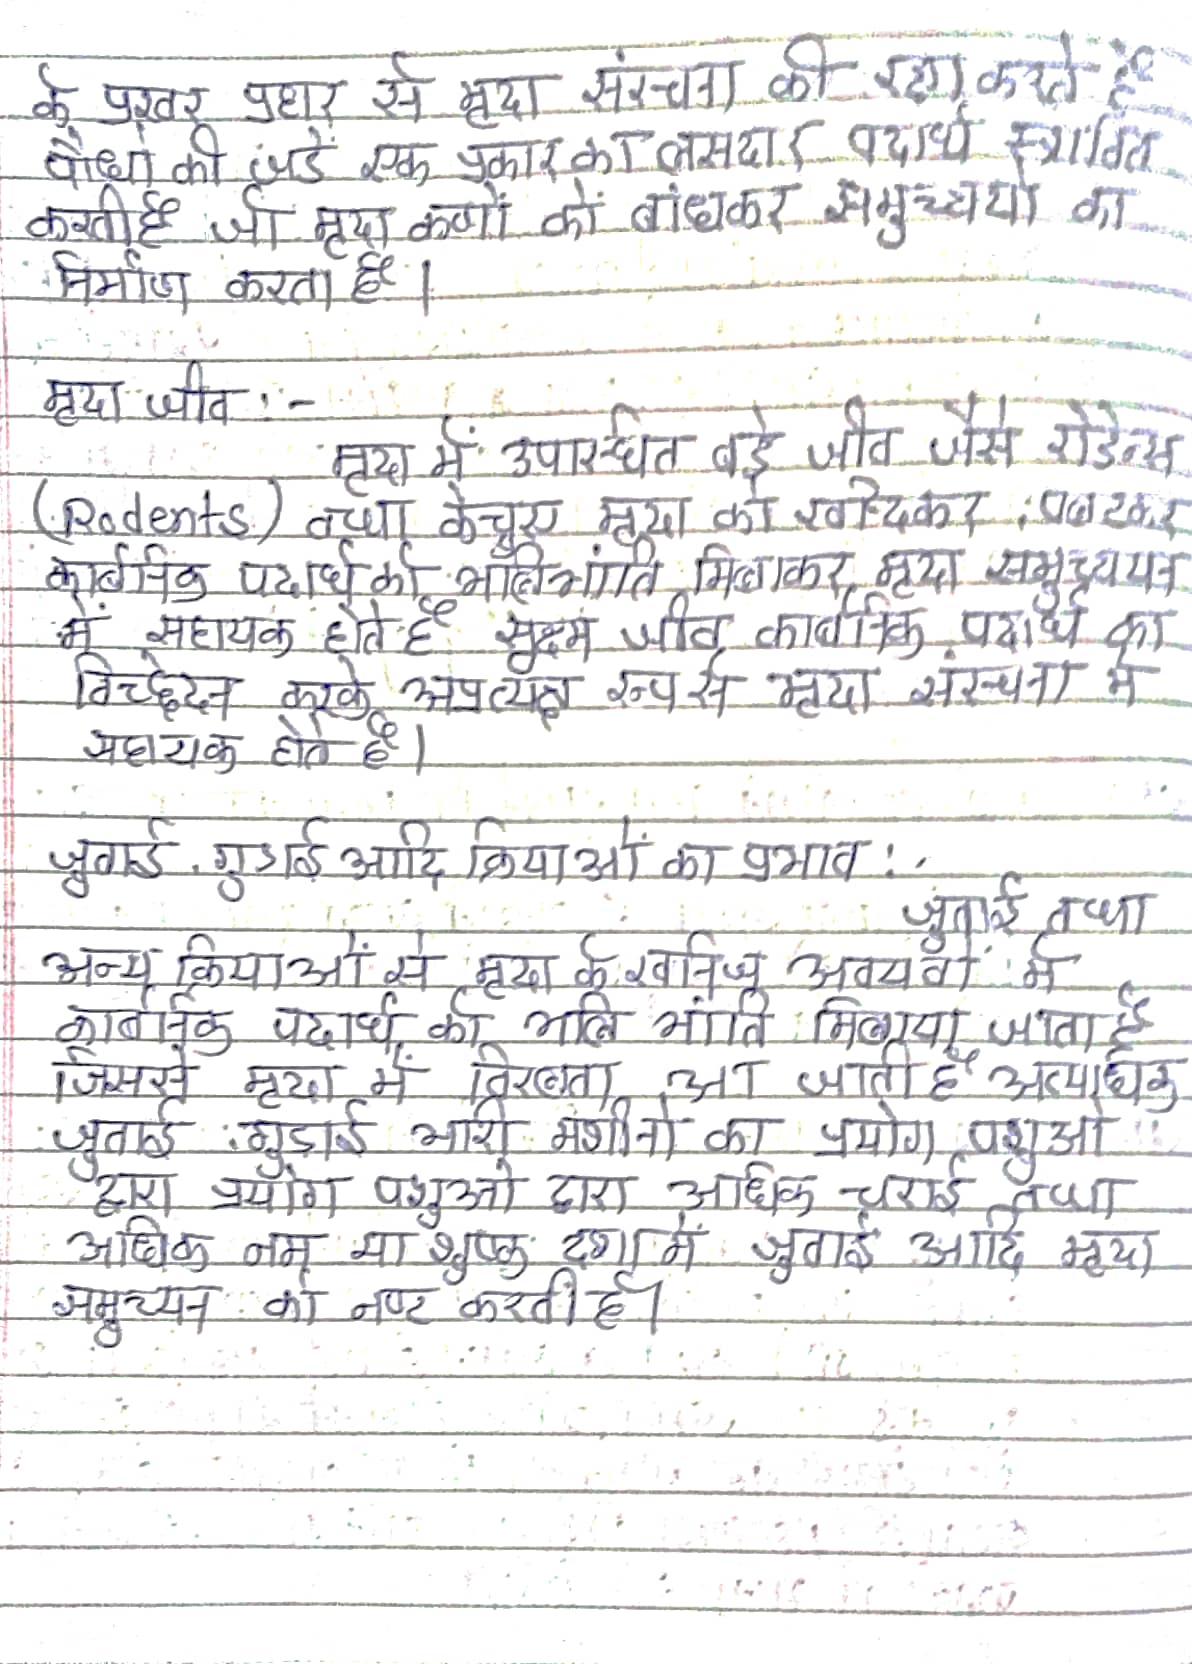 के प्रखर प्रहार से मृदा संरचना की रक्षा करते है
पौधो की जड़ें एक प्रकार का लसदार पदार्थ स्त्रावित
करती है जो मृदा कणों को बांधकर समुच्चयो का
निर्माण करता है |
मृदा जीव :-
मृदा में उपास्थित बड़े जीव जैसे रोडेन्स
(Rodents) तथा केचुए मृदा को खोदकर , पलटकर
कार्बनिक पदार्थ को भलिभांति मिलाकर मृदा समुच्ययन
में सहायक होते है सूक्ष्म जीव कार्बनिक पदार्थ का
विच्छेदन करके अप्रत्यक्ष रूप से मृदा संरचना में
सहायक होते है |
जुताई . गुडाई आदि क्रियाओं का प्रभाव :-
जुताई तथा
अन्य क्रियाओं से मृदा के खनिज अवयवों में
कार्बनिक पदार्थ को भलि भांति मिलाया जाता है
जिससे मृदा में विरलता आ जाती है अत्याधिक
जुताई . गुडाई भारी मशीनो का प्रयोग पशुओ
द्वारा प्रयोग पशुओ द्वारा अधिक चराई तथा
अधिक नम या शुष्क दशा में जुताई आदि मृदा
समुच्यन को नष्ट करती है |